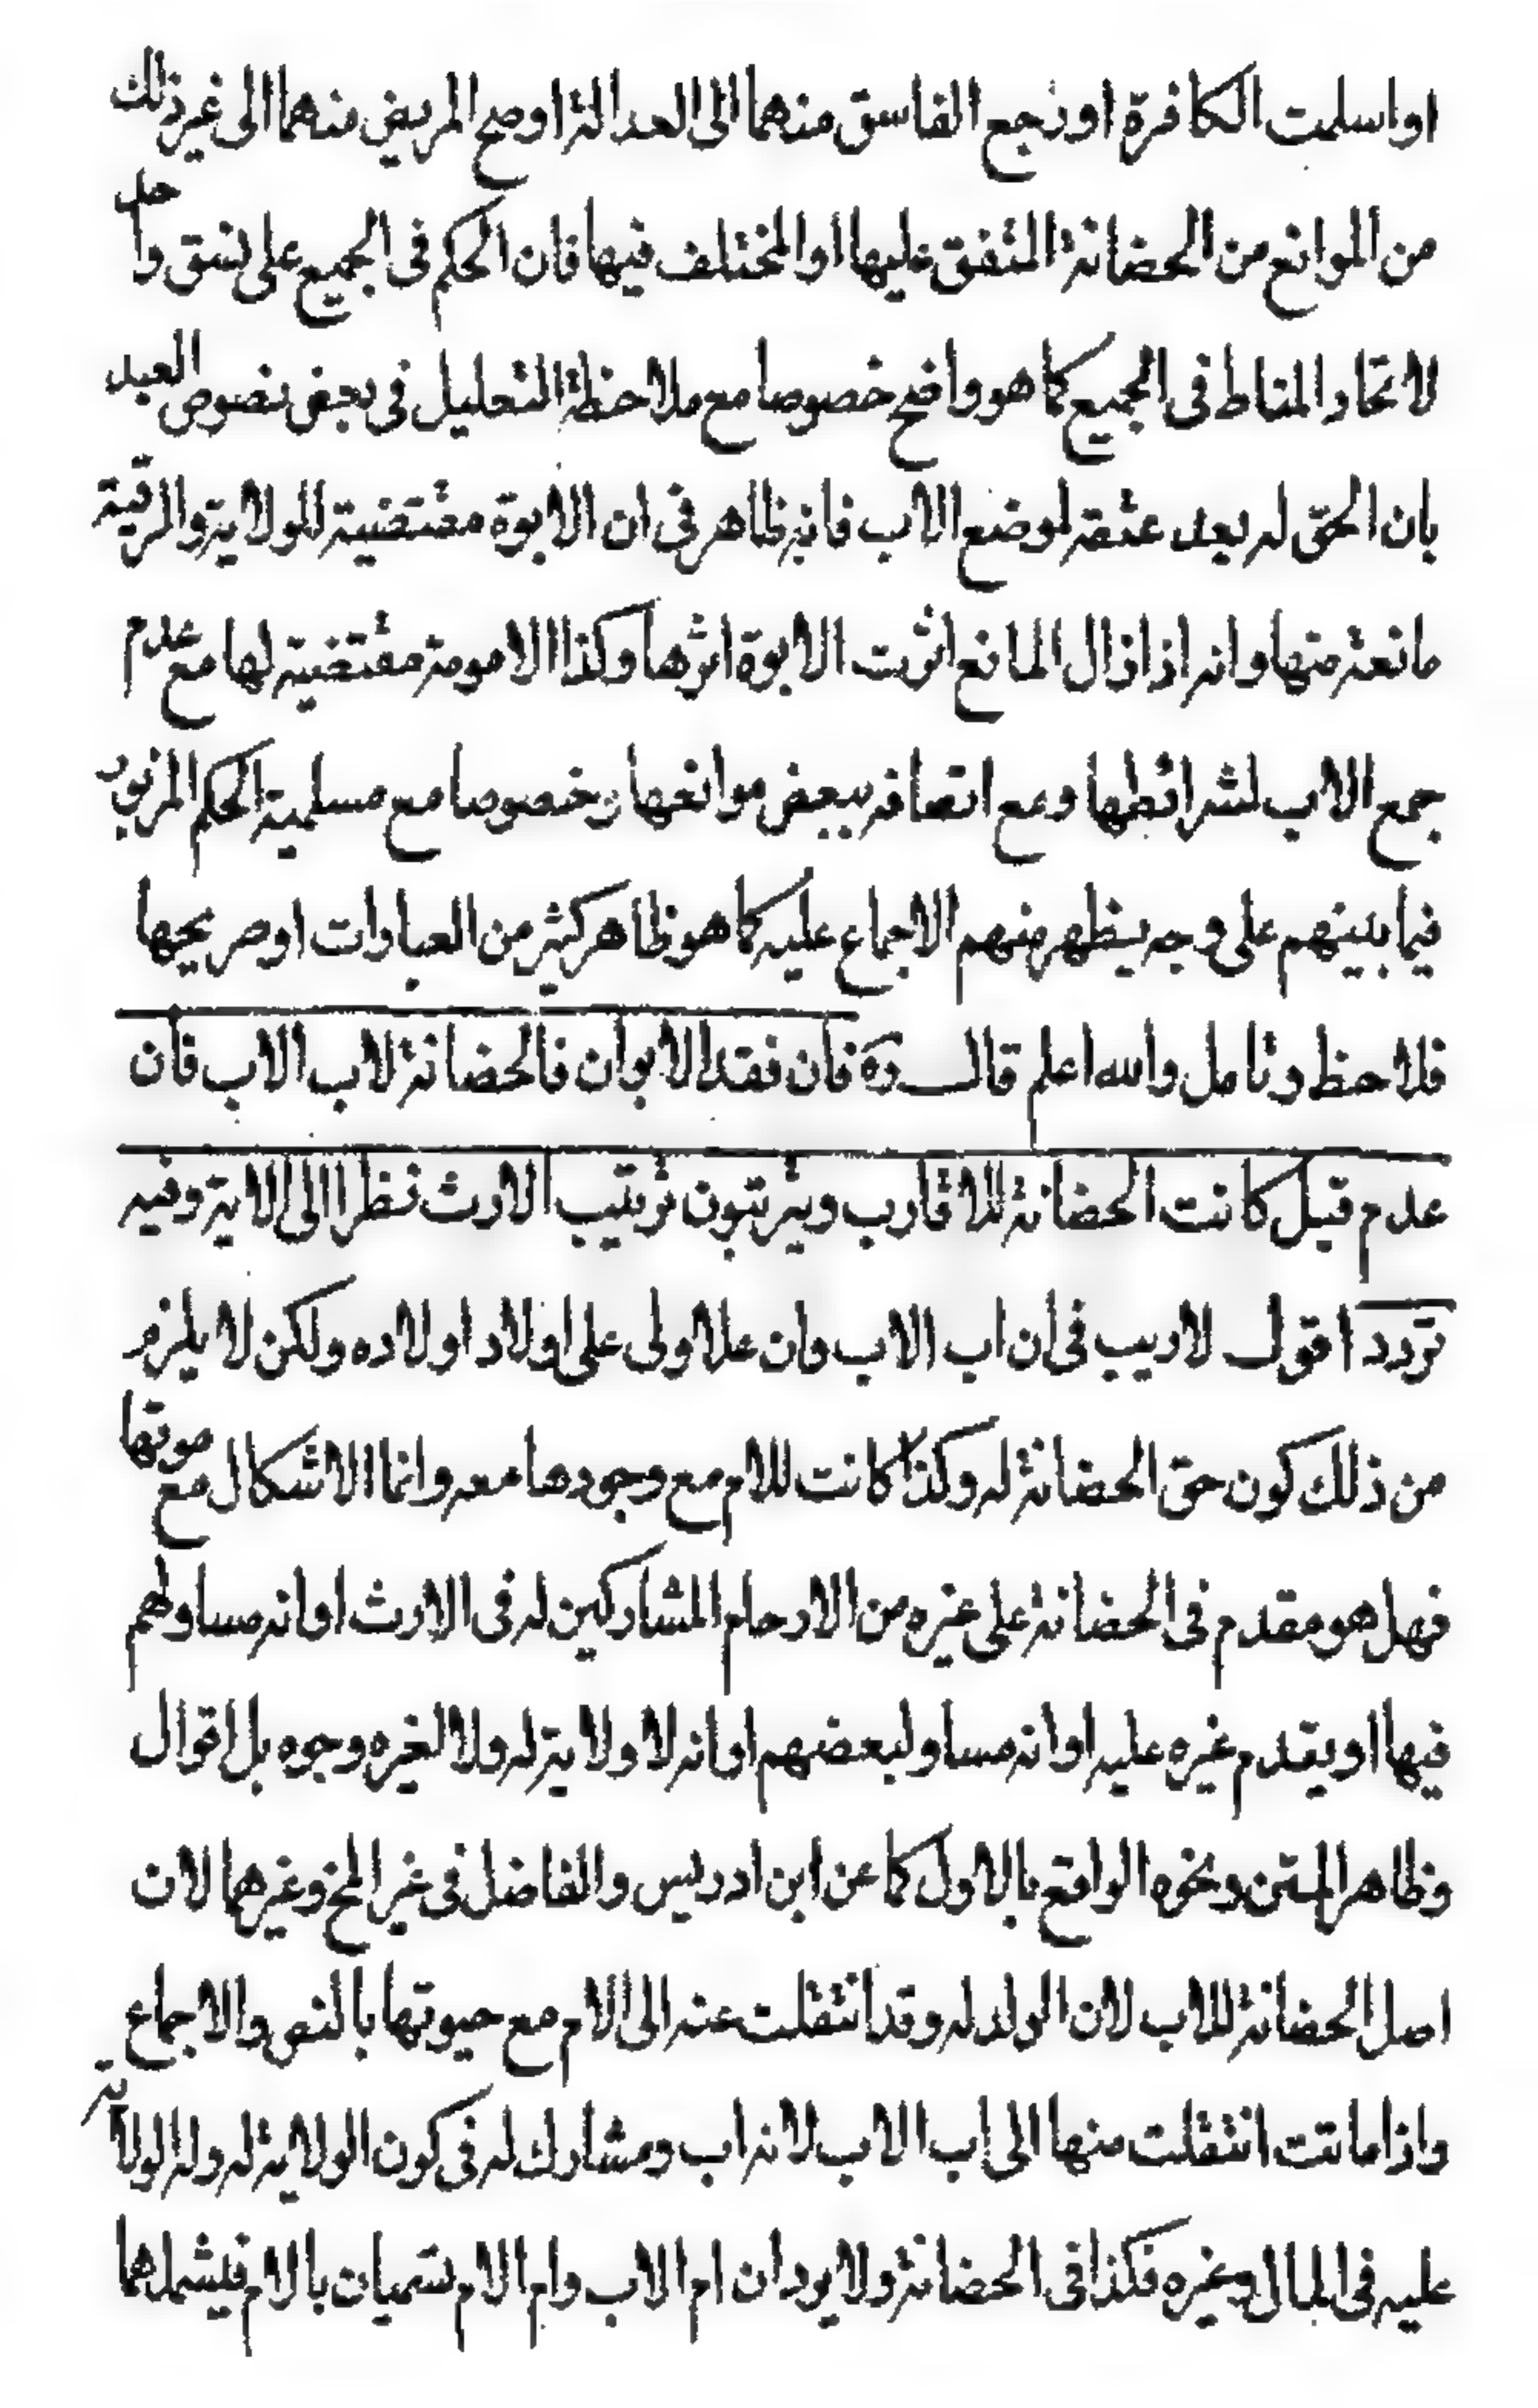 او اسلمت الكافرة او رجع الفاسق منهما الى العدالة او صح المريض منهما الى غير ذلك
من الموانع من الحضانة المتفق عليها او المختلف فيها فان الحكم فى الجميع على نسق واحد
لاتحاد المناط فى الجميع كما هو واضح خصوصا مع ملاحظة التعليل فى بعض نصوص العبد
بان الحق له بعد عتقه لموضع الاب فانه ظاهر فى ان الابوة مقتضية للولاية والرقية
مانعة منها وانه اذا زال المانع اثرت الابوة اثرها وكذا الامومة مقتضية لها مع عدم
جمع الاب لشرائطها ومع اتصافه ببعض موانعها وخصوصا مع مسلمية الحكم المزبور
فيما بينهم على وجه يظهر منهم الاجماع عليه كما هو ظاهر كثير من العبارات او صريحها
فلاحظ وتامل والله اعلم قال ره فان فقد الابوان فالحضانة لاب الاب فان
عدم قيل كانت الحضانة للاقارب ويترتبون ترتيب الارث نظرا الى الاية وفيه
تردد اقول لا ريب فى ان اب الاب وان علا ولى على اولاد اولاده ولكن لا يلزم
من ذلك كون حق الحضانة له وكذا كانت للام مع وجودها معه وانما الاشكال مع موتها
فهل هو مقدم فى الحضانة على غيره من الارحام المشاركين له فى الارث او انه مساو لهم
فيها او يتقدم غيره عليه او انه مساو لبعضهم او انه لا ولاية له ولا لغيره وجوه بل اقوال
وظاهر المتن ونحوه الواقع بالاول كما عن ابن ادريس والفاضل فى غير المخ وغيرهما لان
اصل الحضانة للاب لان الولد له وقد انتقلت عنه الى الام مع حيوتها بالنص والاجماع
واذا ماتت انتقلت منها الى اب الاب لانه اب ومشارك له فى كون الولاية له وله الولاية
عليه فى المال وغيره فكذا فى الحضانة ولا يرد ان ام الاب وام الام تسميان بالام فيشملهما